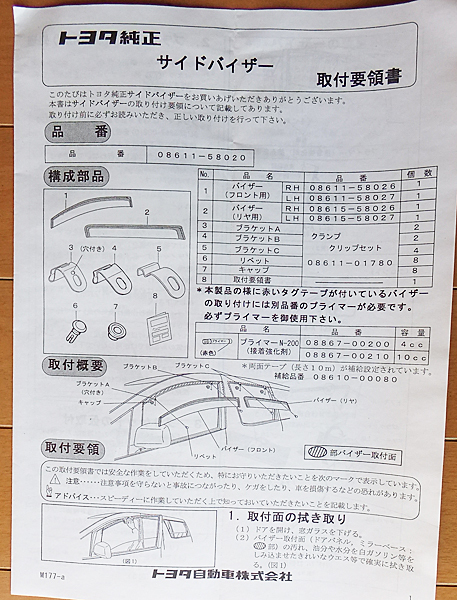 トヨタ純正
サイドバイザー
取付要領書
このたびはトヨタ純正サイドバイザーをお買いあげいただきありがとうございます。
本書はサイドバイザーの取り付け要領について記載してあります。
取り付け前に必ずお読みいただき、正しい取り付けを行って下さい。
品番
品番 08611-58020
構成部品
No. 品名 品番 個数
1 バイザー(フロント用) RH 08611-58026 1
LH 08611-58027 1
2 バイザー(リヤ用) RH 08615-58026 1
LH 08615-58027 1
3 ブラケットA 2
4 ブラケットB クランプ 2
5 ブラケットC クリップセット 4
6 リベット 08611-01780 8
7 キャップ 8
8 取付要領書 1
1
2
3 (穴付き) 4 5
6 7 8
*本製品の様に赤いタグテープが付いているバイザー
の取り付けには別品番のプライマーが必要です。
必ずプライマーを御使用下さい。
品名 品番 容量
(赤色) プライマーN-200 08867-00200 4cc
(接着強化剤) 08867-00210 10cc
*両面テープ(長さ10m)が補給設定されています。
補給品番 08610-00080
取付概要
ブラケットB
ブラケットC
ブラケットA
(穴付き)
キャップ
バイザー(リヤ)
バイザー(フロント)
リベット
部バイザー取付面
取付要領
この取付要領書では安全な作業をしていただくため、特にお守りいただきたいことを次のマークで表示しています。
注意……注意事項を守らないと事故につながったり、ケガをしたり、車を損傷するなどの恐れがあります。
アドバイス…スピーディーに作業していただく上で知っておいていただきたいことを記載します。
1. 取付面の拭き取り
(1)ドアを開け、窓ガラスを下げる。
(2)バイザー取付面(ドアパネル、ミラーベース:
部)の汚れ、油分や水分を白ガソリン等を
しみ込ませたきれいなウエス等で確実に拭き取
る。(図1)
(図1)
M177-a
トヨタ自動車株式会社
1